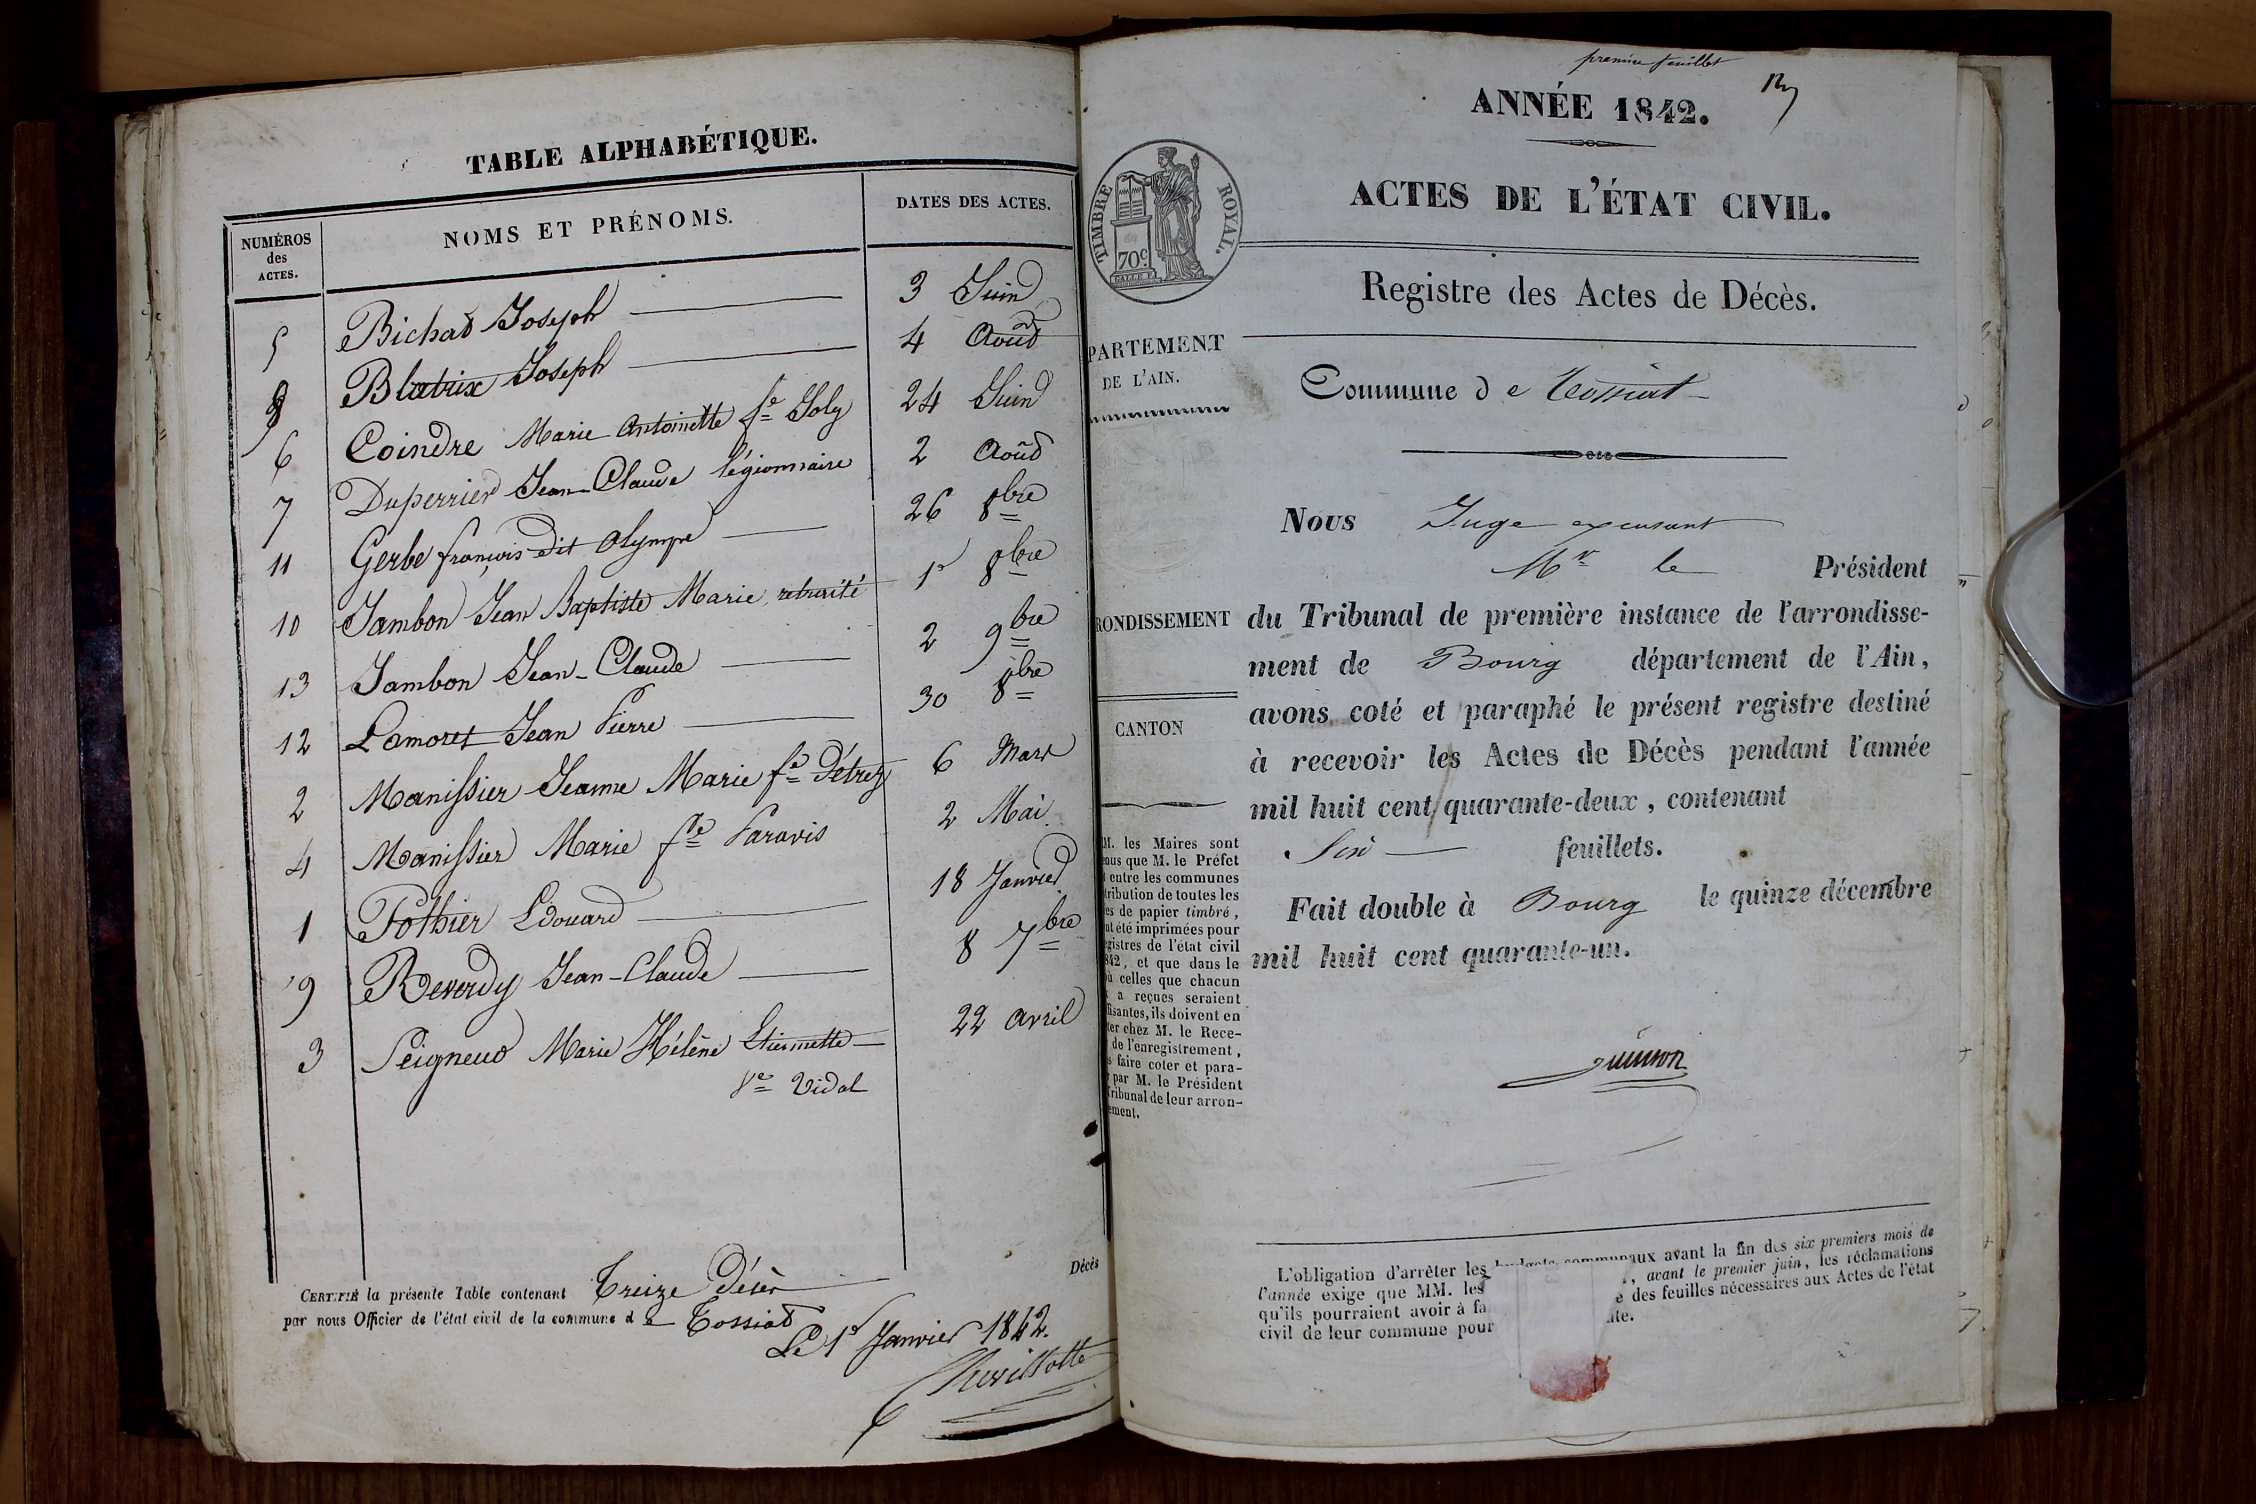 TABLE ALPHABÉTIQUE.
NUMÉROS des ACTES.
NOMS ET PRÉNOMS.
DATES DES ACTES.
5 Bichat Joseph 3 Juin
8 Blatrix Joseph 4 Août
6 Coindre Marie Antoinette fe Joly 24 Juin
7 Duperrier Jean-Claude légionnaire 2 Août
11 Gerbe françois dit Olympe 26 8bre
10 Jambon Jean Baptiste Marie retraité 1r 8bre
13 Jambon Jean-Claude 2 9bre
12 Lamoret Jean Pierre 30 8bre
2 Manissier Jeanne Marie fe Détrez 6 Mars
4 Manissier Marie fe Paravis 2 Mai
1 Pothier Edouard 18 Janvier
9 Reverdy Jean-Claude 8 7bre
3 Seigneur Marie Hélène Etiennette 22 avril
Ve Vidal
Décès
CERTIFIÉ la présente Table contenant Treize Décès
par nous Officier de l'état civil de la commune de Tossiat
Le 1r Janvier 1842.
premier feuillet
ANNÉE 1842.
ACTES DE L'ÉTAT CIVIL.
TIMBRE ROYAL.
70c
Registre des Actes de Décès.
PARTEMENT
DE L'AIN.
Commune de Tossiat
Nous Juge excusant
Mr le Président
RONDISSEMENT
du Tribunal de première instance de l'arrondisse-
ment de Bourg département de l'Ain,
avons coté et paraphé le présent registre destiné
CANTON
à recevoir les Actes de Décès pendant l'année
mil huit cent quarante-deux, contenant
Six feuillets.
Fait double à Bourg le quinze décembre
mil huit cent quarante-un.
M. les Maires sont
nus que M. le Préfet
entre les communes
tribution de toutes les
es de papier timbré,
nt été imprimées pour
gistres de l'état civil
842, et que dans le
ù celles que chacun
a reçues seraient
ffisantes, ils doivent en
ter chez M. le Rece-
de l'enregistrement,
s faire coter et para-
par M. le Président
Tribunal de leur arron-
ement.
L'obligation d'arrêter les budgets communaux avant la fin des six premiers mois de
l'année exige que MM. les , avant le premier juin, les réclamations
qu'ils pourraient avoir à fa e des feuilles nécessaires aux Actes de l'état
civil de leur commune pour ite.